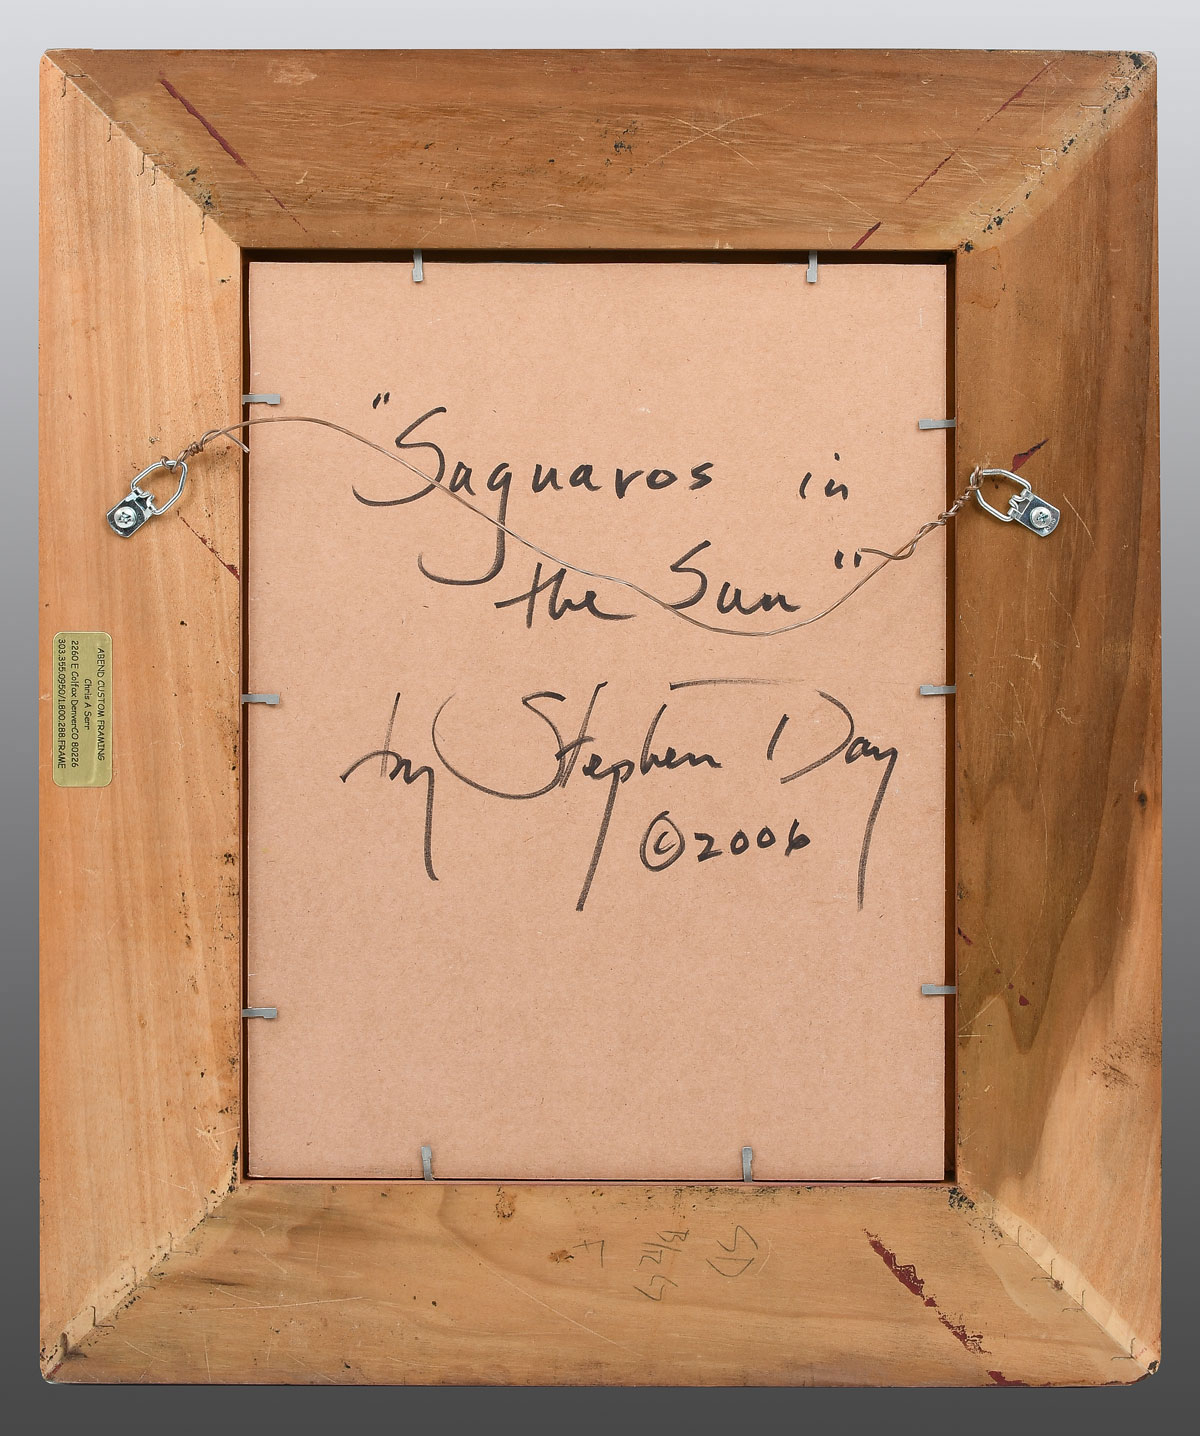 "Saguaros in
the Sun"
by Stephen Day
©2006
ABEND CUSTOM FRAMING
Chris A Serr
2260 E Colfax DenverCO 80226
303.355.0950/1.800.288.FRAME
SD